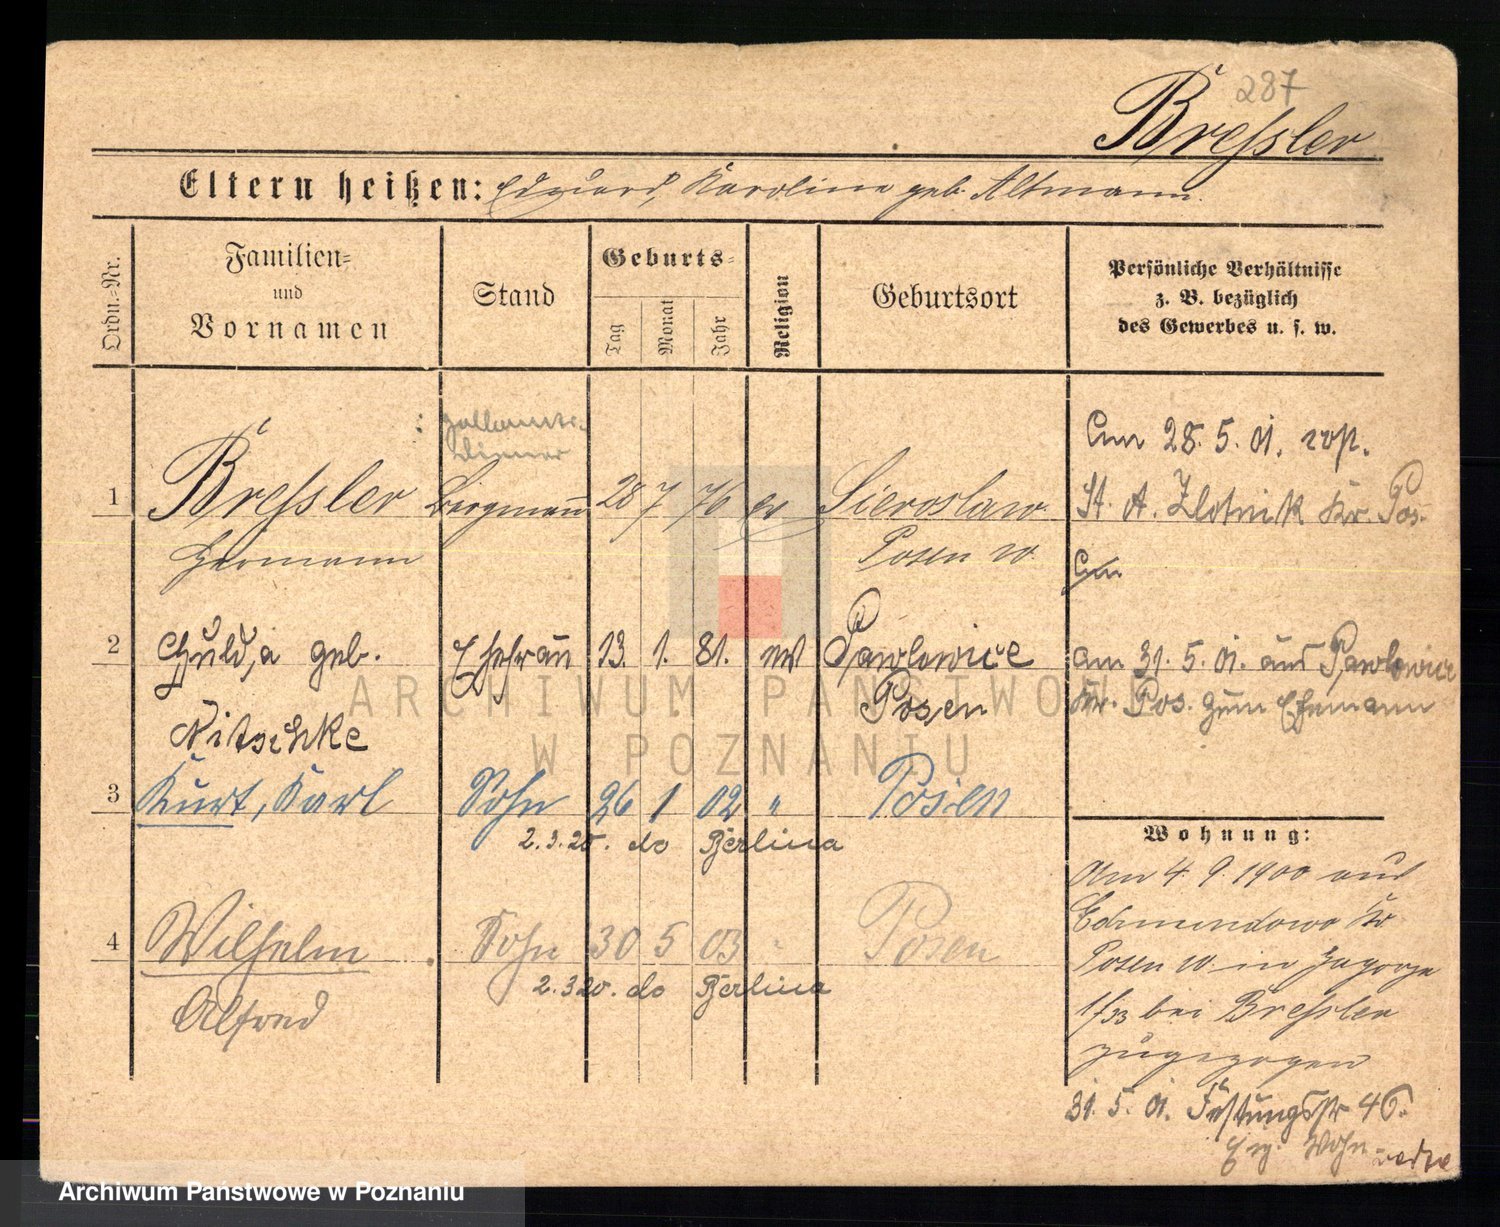 287
Breſsler
Eltern heißen: Eduard, Karoline geb. Altmann.
Ordn.-Nr.
Familien-
und
Vornamen
Stand
Geburts-
Tag
Monat
Jahr
Religion
Geburtsort
Persönliche Verhältnisse
z. B. bezüglich
des Gewerbes u. s. w.
1 Breſsler 28 7 76 ev Sieroslaw
Hermann Posen W.
Am 28. 5. 01.
St. A. Zlotnik Kr. Pos.
Am
2 Hulda geb. Ehefrau 13. 1. 81. ev Pawlowice
Nitschke Posen
am 31. 5. 01. aus Pawlowice
Kr. Pos. zum Ehemann
3 Kurt, Karl Sohn 26 1 02 " Posen
2.3.20. do Berlina
4 Wilhelm Sohn 30 5 03 " Posen
Alfred
2.3 20. do Berlina
Wohnung:
Am 4. 9. 1900 aus
Edmundowo Kr
Posen W. in
bei Breſsler
zugezogen
31. 5. 01. Festungsstr 46.
Wohn
ARCHIWUM PAŃSTWOWE
W POZNANIU
Archiwum Państwowe w Poznaniu